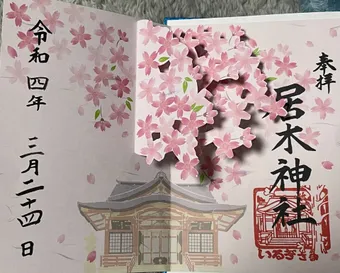 奉拝
居木神社
いるぎさま
令和四年
三月二十四日